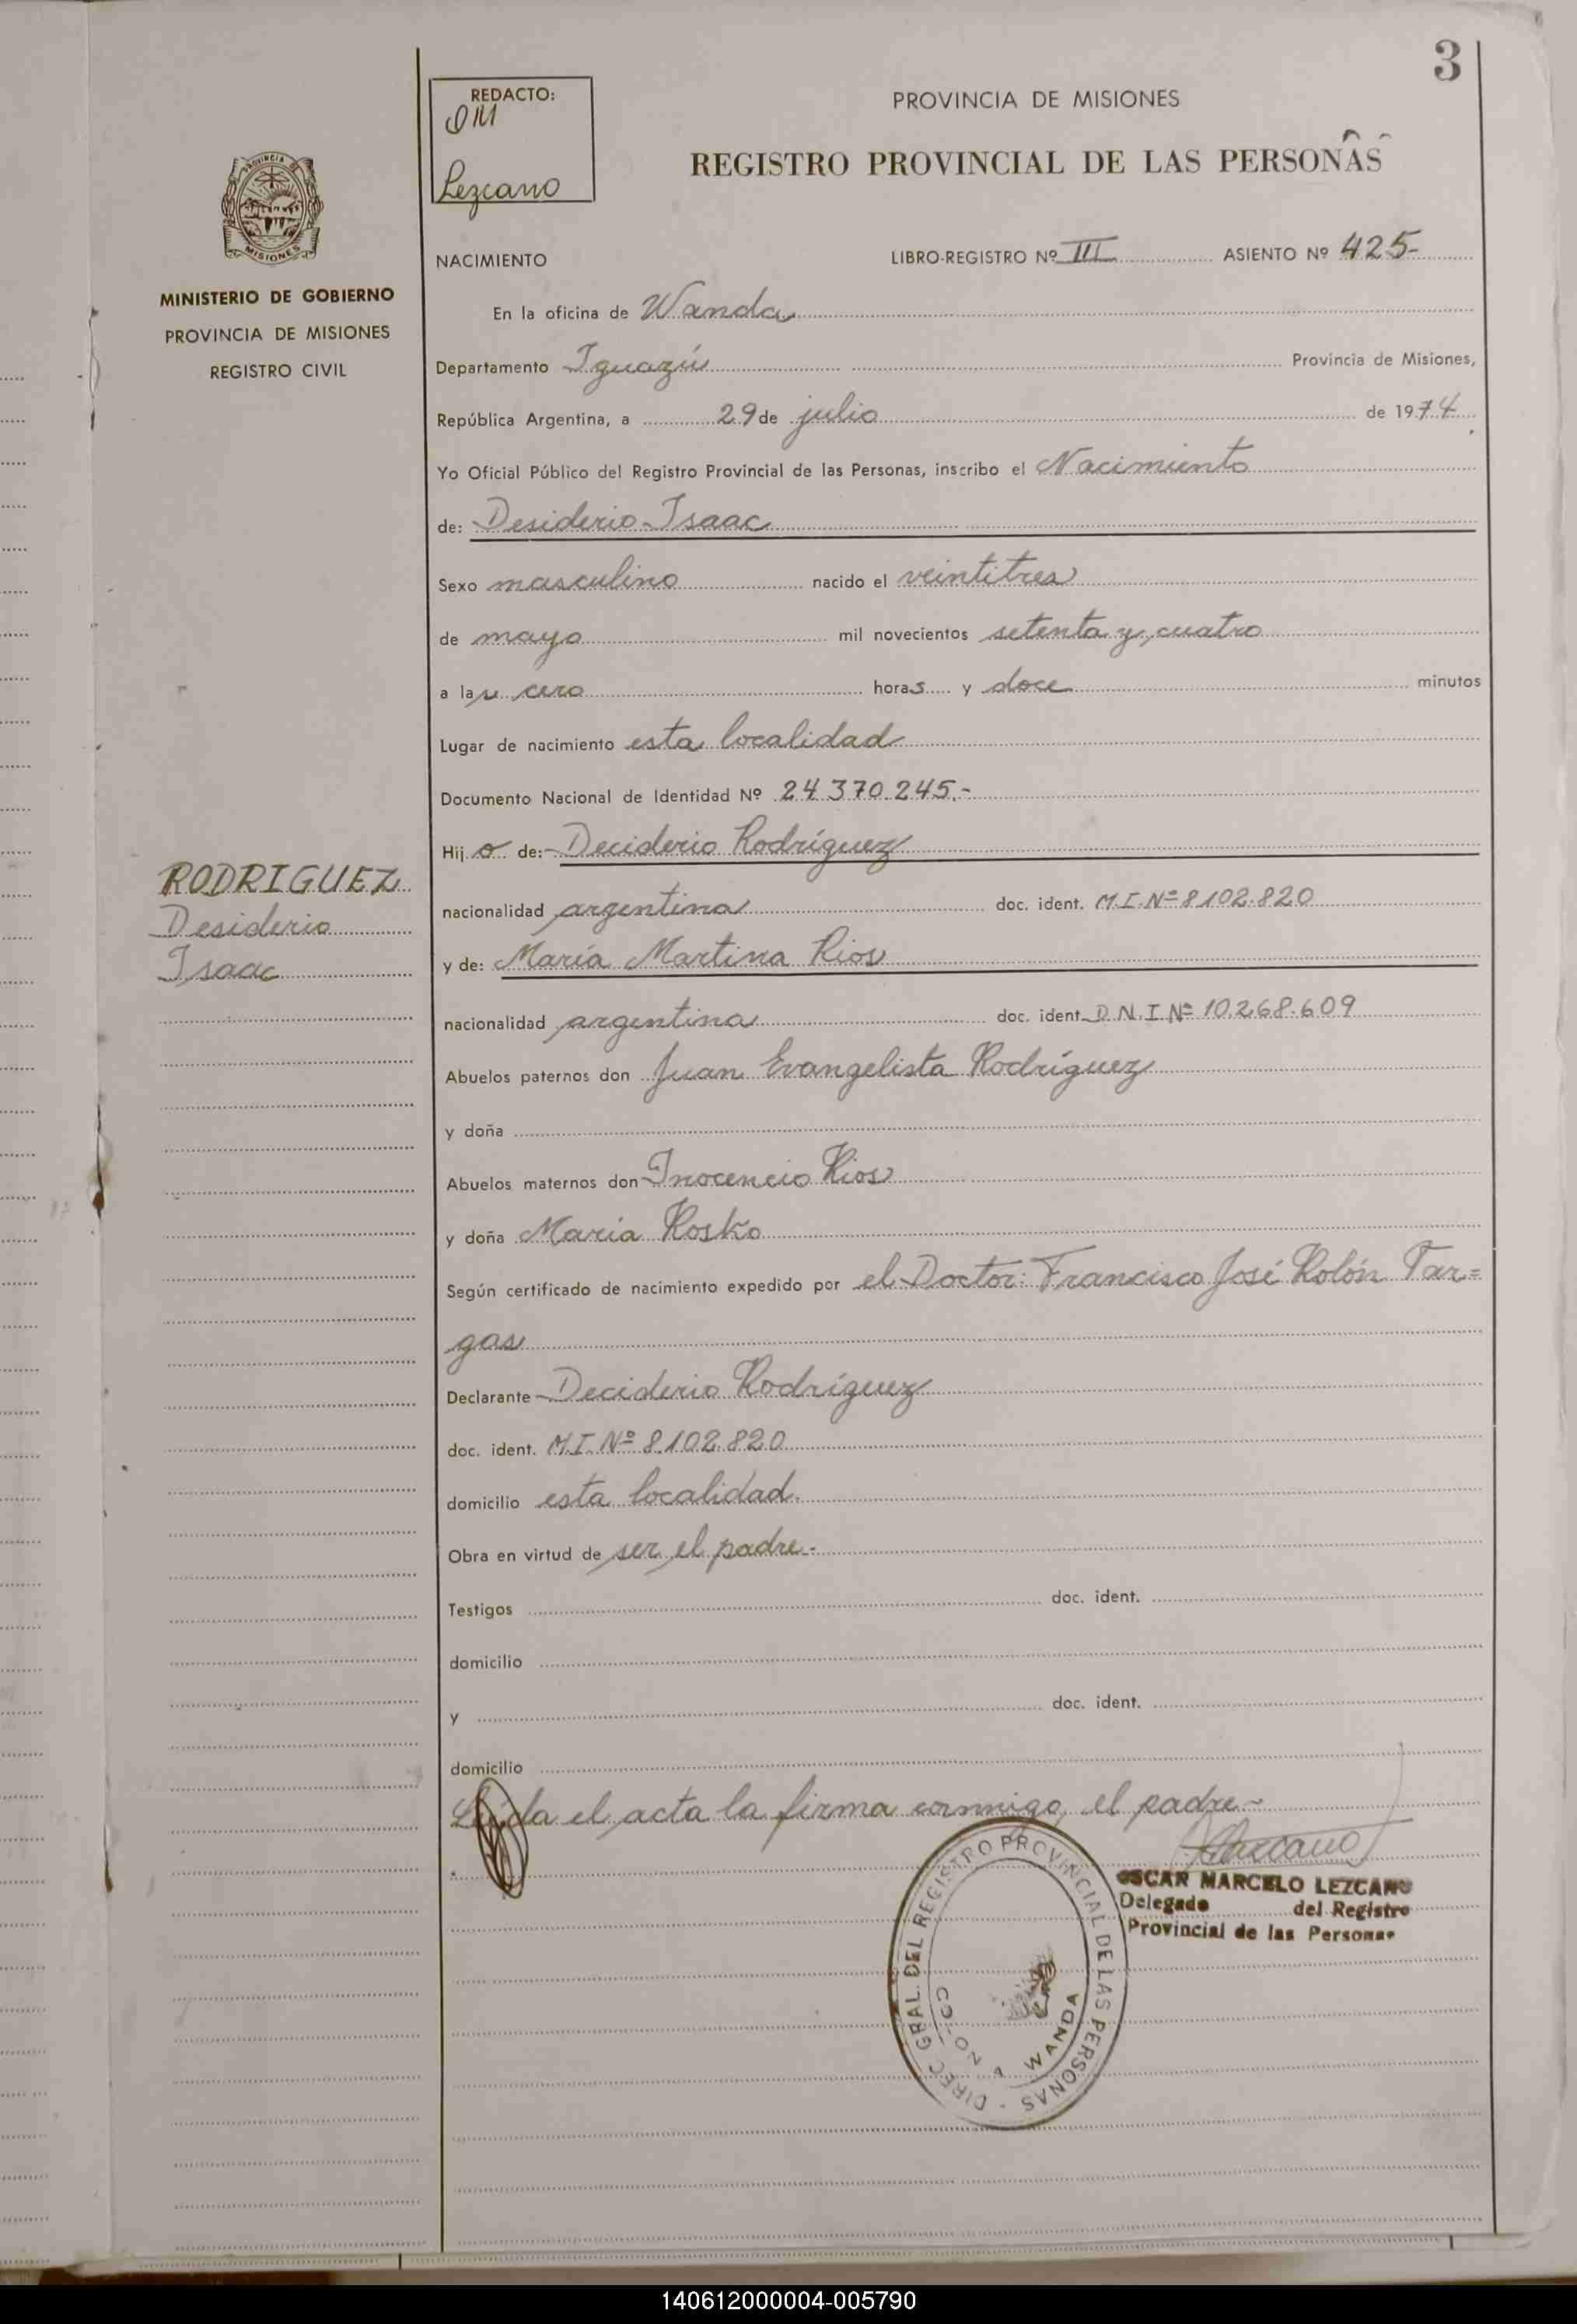 3
REDACTO:
OM
Lezcano
PROVINCIA DE MISIONES
REGISTRO PROVINCIAL DE LAS PERSONAS
PROVINCIA DE
MISIONES
MINISTERIO DE GOBIERNO
PROVINCIA DE MISIONES
REGISTRO CIVIL
NACIMIENTO LIBRO-REGISTRO Nº III ASIENTO Nº 425-
En la oficina de Wanda
Departamento Iguazú Provincia de Misiones,
República Argentina, a 29 de julio de 1974
Yo Oficial Público del Registro Provincial de las Personas, inscribo el Nacimiento
de: Desiderio Isaac
Sexo masculino nacido el veintitres
de mayo mil novecientos setenta y cuatro
a las cero horas y doce minutos
Lugar de nacimiento esta localidad
Documento Nacional de Identidad Nº 24.370.245.-
Hijo de:- Deciderio Rodríguez
RODRIGUEZ
Desiderio
Isaac
nacionalidad argentina doc. ident. M.I.Nº 8102.820
y de: María Martina Rios
nacionalidad argentina doc. ident. D.N.I.Nº 10.268.609
Abuelos paternos don Juan Evangelista Rodríguez
y doña
Abuelos maternos don Inocencio Rios
y doña María Rosko
Según certificado de nacimiento expedido por el Doctor: Francisco José Rolón Tar=
gas
Declarante - Deciderio Rodríguez
doc. ident. M.I. Nº 8.102.820
domicilio esta localidad.
Obra en virtud de ser el padre.-
Testigos doc. ident.
domicilio
y doc. ident.
domicilio
Leída el acta la firma conmigo, el padre.-
Lezcano
OSCAR MARCELO LEZCANO
Delegado del Registro
Provincial de las Personas
DIREC. GRAL. DEL REGISTRO PROVINCIAL DE LAS PERSONAS
WANDA
140612000004-005790